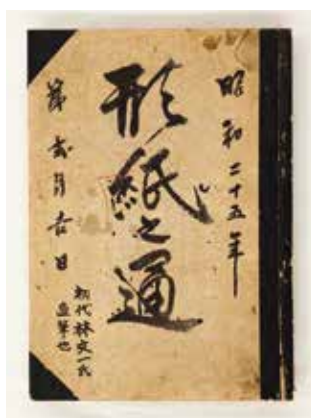 昭和二十五年
形紙之通
第貳月吉日
初代林文一氏
直筆也